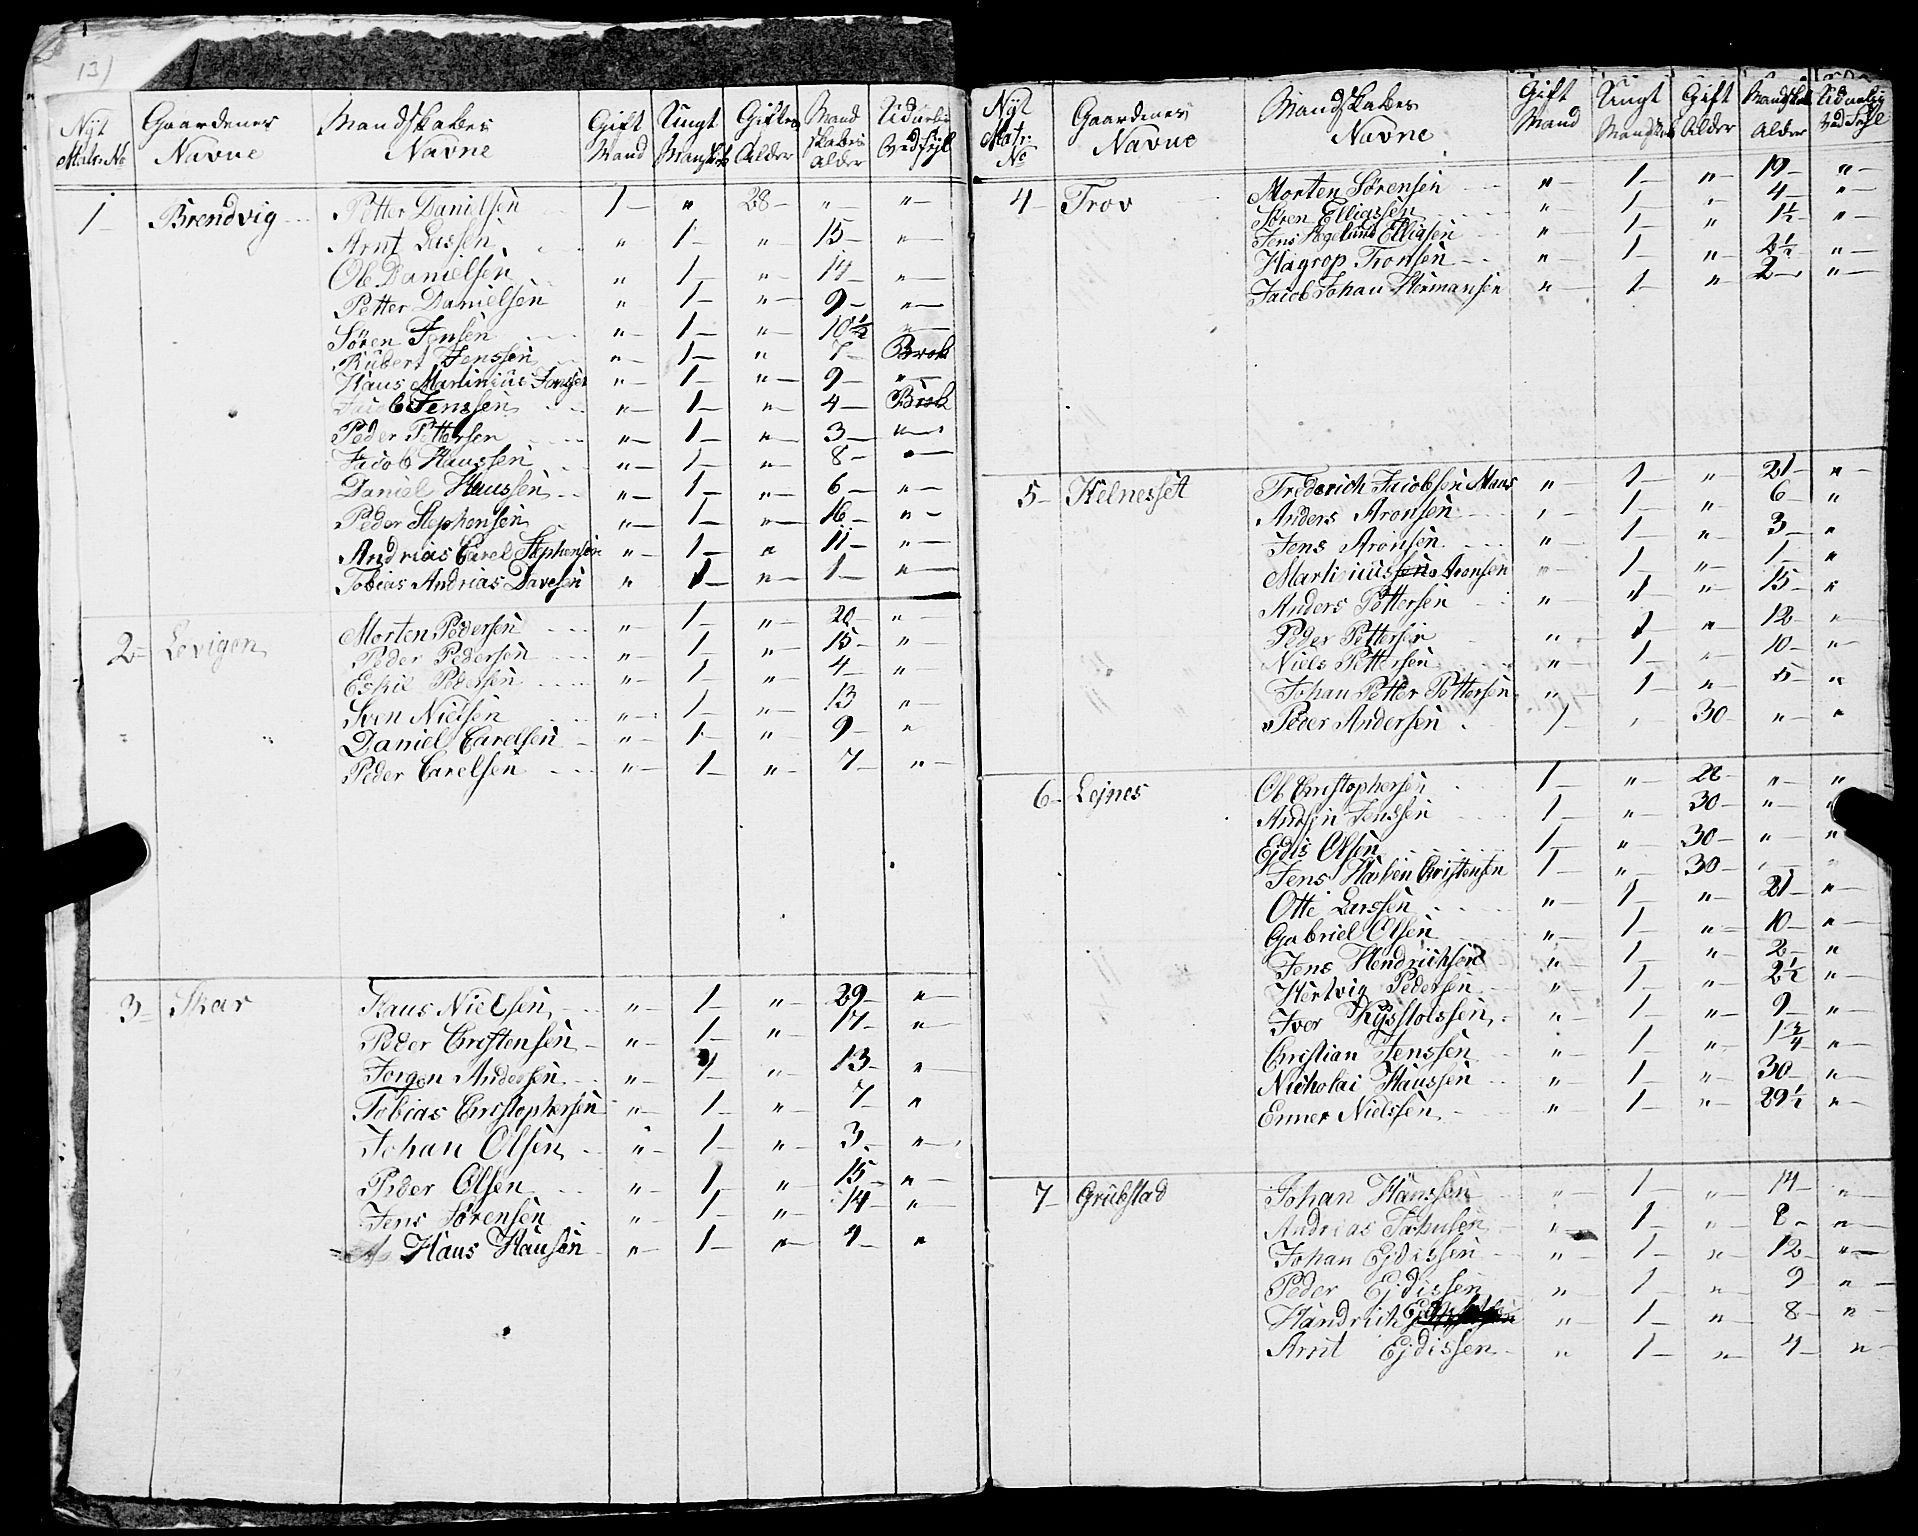 13)
Nyt Matr: No | Gaardenes Navne | Mandskabes Navne | Gift Mand | Ungt Mandskab | Giftes Alder | Mand skabes Alder | Uduelig ved Fejl
1 | Brendvig | Petter Danielsen | 1 | " | 28 | " | "
Arnt Larssen | " | 1 | " | 15 | "
Ole Danielsen | " | 1 | " | 14 | "
Petter Danielsen | " | 1 | " | 9 | "
Sören Jensen | " | 1 | " | 10½ | "
Rubert Jenssen | " | 1 | " | 7 | Brok
Hans Martinius Jenssen | " | 1 | " | 9 | "
Jacob Jenssen | " | 1 | " | 4 | Brok
Peder Pettersen | " | 1 | " | 3 | "
Jacob Hanssen | " | 1 | " | 8 | "
Daniel Hanssen | " | 1 | " | 6 | "
Peder Stephensen | " | 1 | " | 16 | "
Andrias Carel Stephensen | " | 1 | " | 11 | "
Tobias Andrias Davesen | " | 1 | " | 1 | "
2 | Levigen | Morten Pedersen | " | 1 | " | 20 | "
Peder Pedersen | " | 1 | " | 15 | "
Eskil Pedersen | " | 1 | " | 4 | "
Sven Nielsen | " | 1 | " | 13 | "
Daniel Carelsen | " | 1 | " | 9 | "
Peder Carelsen | " | 1 | " | 7 | "
3 | Skar | Hans Nielsen | " | 1 | " | 29 | "
Peder Christensen | " | 1 | " | 17 | "
Jorgen Andersen | " | 1 | " | 13 | "
Tobias Christophersen | " | 1 | " | 7 | "
Johan Olsen | " | 1 | " | 3 | "
Peder Olsen | " | 1 | " | 15 | "
Jens Sørensen | " | 1 | " | 14 | "
Hans Hansen | " | 1 | " | 4 | "
Nyt Matr: No | Gaardenes Navne | Mandskabes Navne | Gift Mand | Ungt Mandskab | Gift Alder | Mandskab Alder | Uduelig ved Fejl
4 | Trov | Morten Sørensen | " | 1 | " | 19 | "
Sören Elliassen | " | 1 | " | 4 | "
Jens Hegelund Elliasen | " | 1 | " | 1½ | "
Hagrop Tronsen | " | 1 | " | 2½ | "
Jacob Johan Hermansen | " | 1 | " | 2 | "
5 | Helnesset | Frederich Jacobsen Maas | " | 1 | " | 21 | "
Anders Aronsen | " | 1 | " | 6 | "
Jens Aronsen | " | 1 | " | 3 | "
Martinius Aronsen | " | 1 | " | 1 | "
Anders Pettersen | " | 1 | " | 15 | "
Peder Pettersen | " | 1 | " | 12 | "
Niels Pettersen | " | 1 | " | 10 | "
Johan Petter Pettersen | " | 1 | " | 5 | "
Peder Andersen | 1 | " | 30 | " | "
6 | Lejnes | Ole Christophersen | 1 | " | 28 | " | "
Jenssen | 1 | " | 30 | " | "
Ejdis Olsen | 1 | " | 30 | " | "
Jens Christensen | 1 | " | 30 | " | "
Otte Larssen | " | 1 | " | 21 | "
Gabriel Olsen | " | 1 | " | 10 | "
Jens Hendrichsen | " | 1 | " | 2 | "
Hertvig Pedersen | " | 1 | " | 2½ | "
Iver | " | 1 | " | 9 | "
Christian Jenssen | " | 1 | " | 1¾ | "
Nicholai Hanssen | " | 1 | " | 30 | "
Enner Nielssen | " | 1 | " | 29½ | "
7 | Grubstad | Johan Hanssen | " | 1 | " | 14 | "
Andrias | " | 1 | " | 8 | "
Johan Ejdissen | " | 1 | " | 12 | "
Peder Ejdissen | " | 1 | " | 9 | "
Handrich | " | 1 | " | 8 | "
Arnt Ejdissen | " | 1 | " | 4 | "